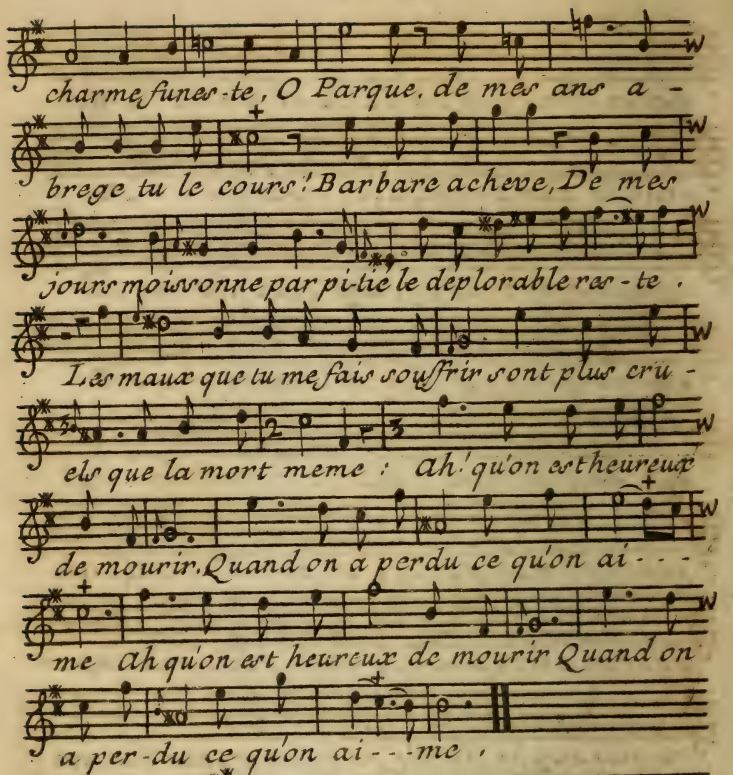 charme funes-te, O Parque. de mes ans a -
brege tu le cours! Barbare acheve, De mes
jours moissonne par pi-tié le deplorable res-te.
Les maux que tu me fais souffrir sont plus cru -
els que la mort meme : Ah! qu'on est heureux
de mourir. Quand on a perdu ce qu'on ai - - - -
me Ah qu'on est heureux de mourir Quand on
a per-du ce qu'on ai - - - me .